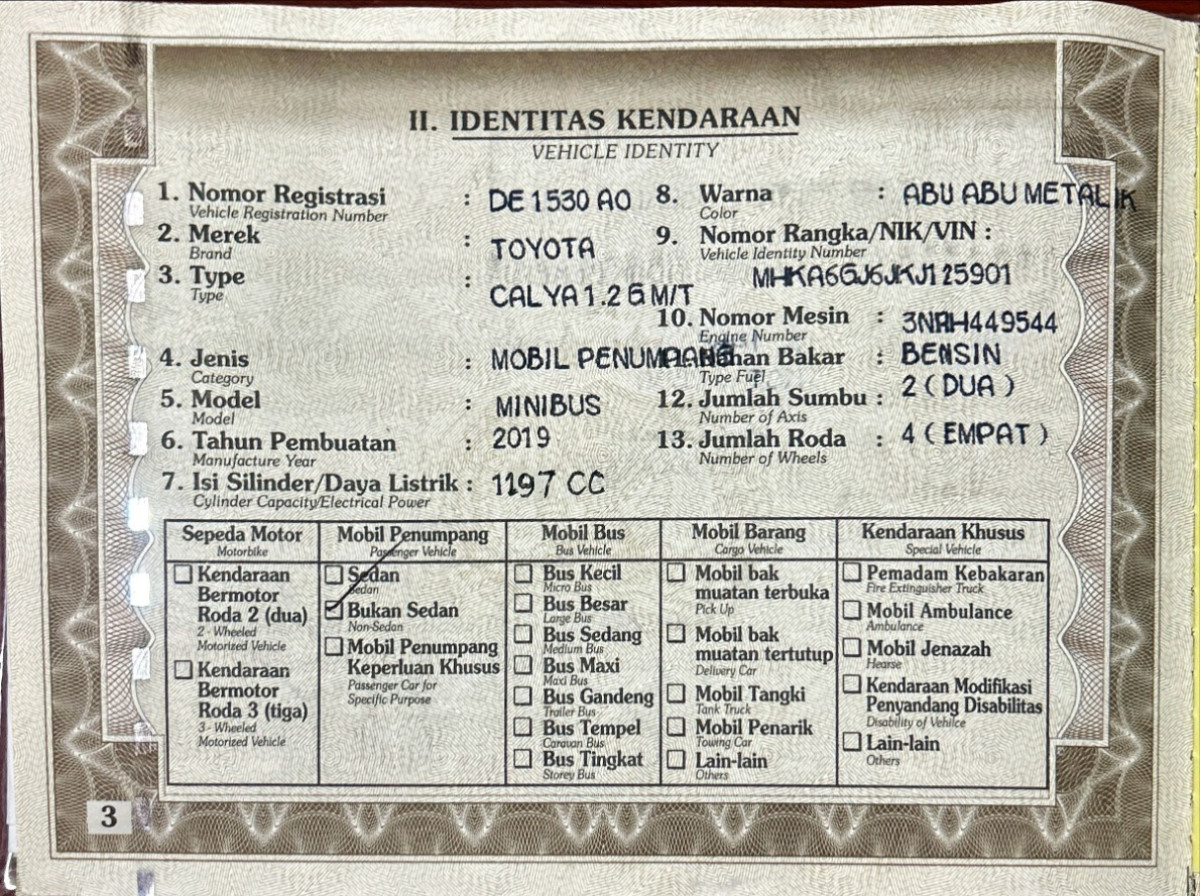 II. IDENTITAS KENDARAAN
VEHICLE IDENTITY
1. Nomor Registrasi : DE 1530 AO
Vehicle Registration Number
2. Merek : TOYOTA
Brand
3. Type : CALYA 1.2 G M/T
Type
4. Jenis : MOBIL PENUMPANG
Category
5. Model : MINIBUS
Model
6. Tahun Pembuatan : 2019
Manufacture Year
7. Isi Silinder/Daya Listrik : 1197 CC
Cylinder Capacity/Electrical Power
8. Warna : ABU ABU METALIK
Color
9. Nomor Rangka/NIK/VIN :
Vehicle Identity Number
MHKA6GJ6JKJ125901
10. Nomor Mesin : 3NRH449544
Engine Number
Bahan Bakar : BENSIN
Type Fuel
12. Jumlah Sumbu : 2 ( DUA )
Number of Axis
13. Jumlah Roda : 4 ( EMPAT )
Number of Wheels
Sepeda Motor
Motorbike
Kendaraan
Bermotor
Roda 2 (dua)
2 - Wheeled
Motorized Vehicle
Kendaraan
Bermotor
Roda 3 (tiga)
3 - Wheeled
Motorized Vehicle
Mobil Penumpang
Passenger Vehicle
Sedan
Sedan
Bukan Sedan
Non-Sedan
Mobil Penumpang
Keperluan Khusus
Passenger Car for
Specific Purpose
Mobil Bus
Bus Vehicle
Bus Kecil
Micro Bus
Bus Besar
Large Bus
Bus Sedang
Medium Bus
Bus Maxi
Maxi Bus
Bus Gandeng
Trailer Bus
Bus Tempel
Caravan Bus
Bus Tingkat
Storey Bus
Mobil Barang
Cargo Vehicle
Mobil bak
muatan terbuka
Pick Up
Mobil bak
muatan tertutup
Delivery Car
Mobil Tangki
Tank Truck
Mobil Penarik
Towing Car
Lain-lain
Others
Kendaraan Khusus
Special Vehicle
Pemadam Kebakaran
Fire Extinguisher Truck
Mobil Ambulance
Ambulance
Mobil Jenazah
Hearse
Kendaraan Modifikasi
Penyandang Disabilitas
Disability of Vehilce
Lain-lain
Others
3